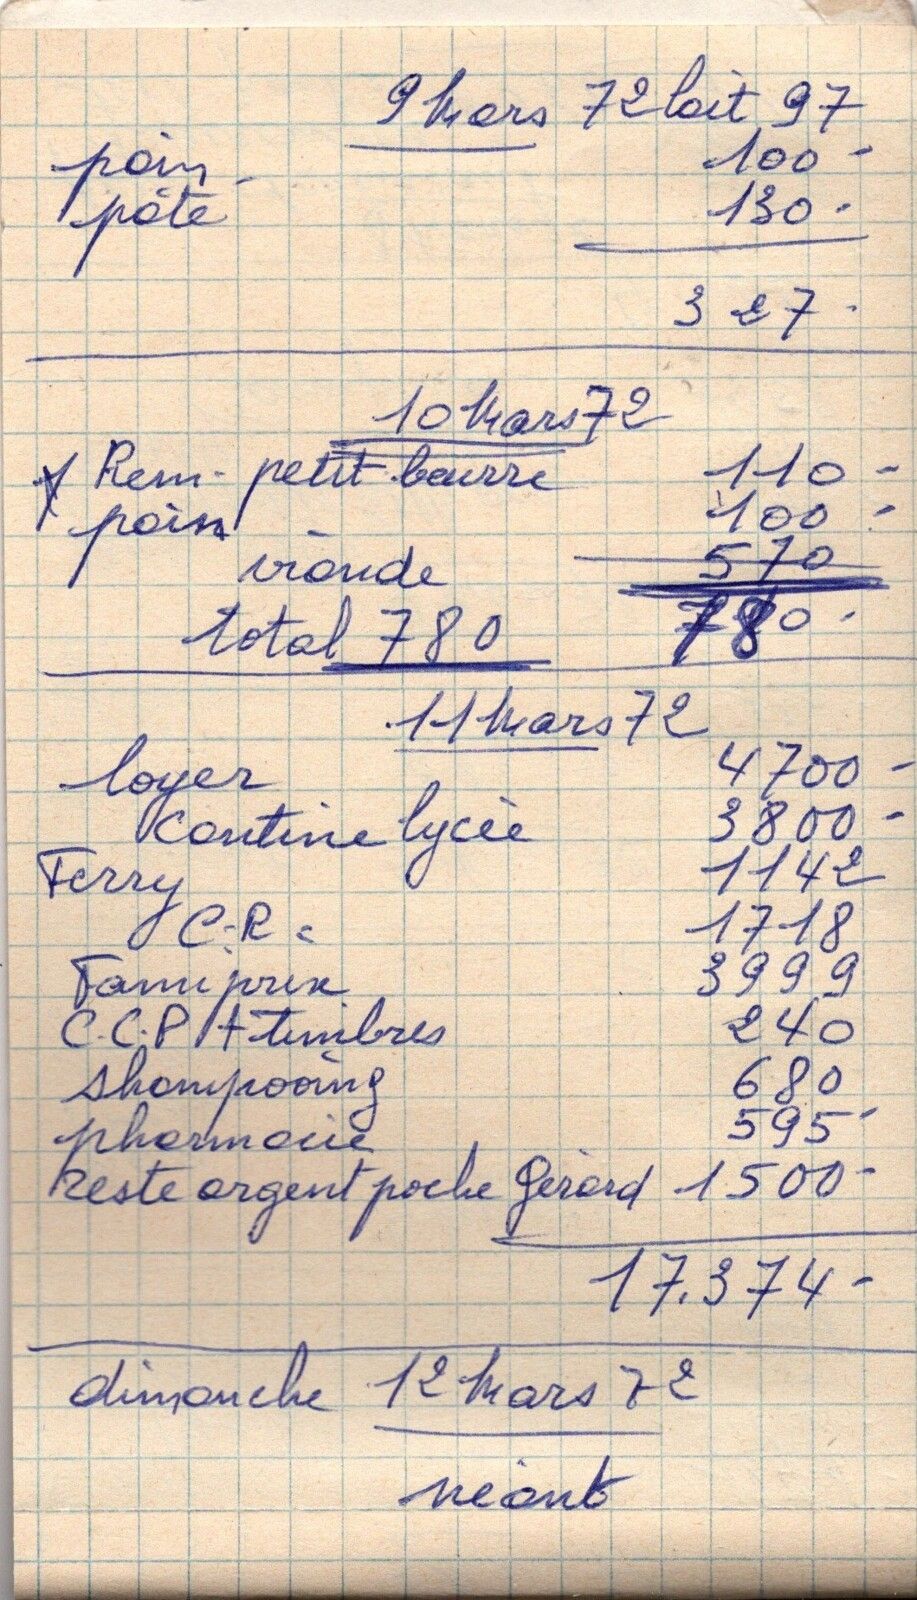 9 Mars 72 lait 97
pain 100 -
pâté 130 -
327 -
10 Mars 72
Rem - petit beurre 110 -
pain 100 -
viande 570
total 780 780 -
11 Mars 72
loyer 4700 -
Cantine lycée 3800 -
Ferry 1142
C.R. 1718
Famiprix 3999
C.C.P + timbres 240
shampooing 680
pharmacie 595 -
reste argent poche Gérard 1500 -
17.374 -
dimanche 12 Mars 72
néant